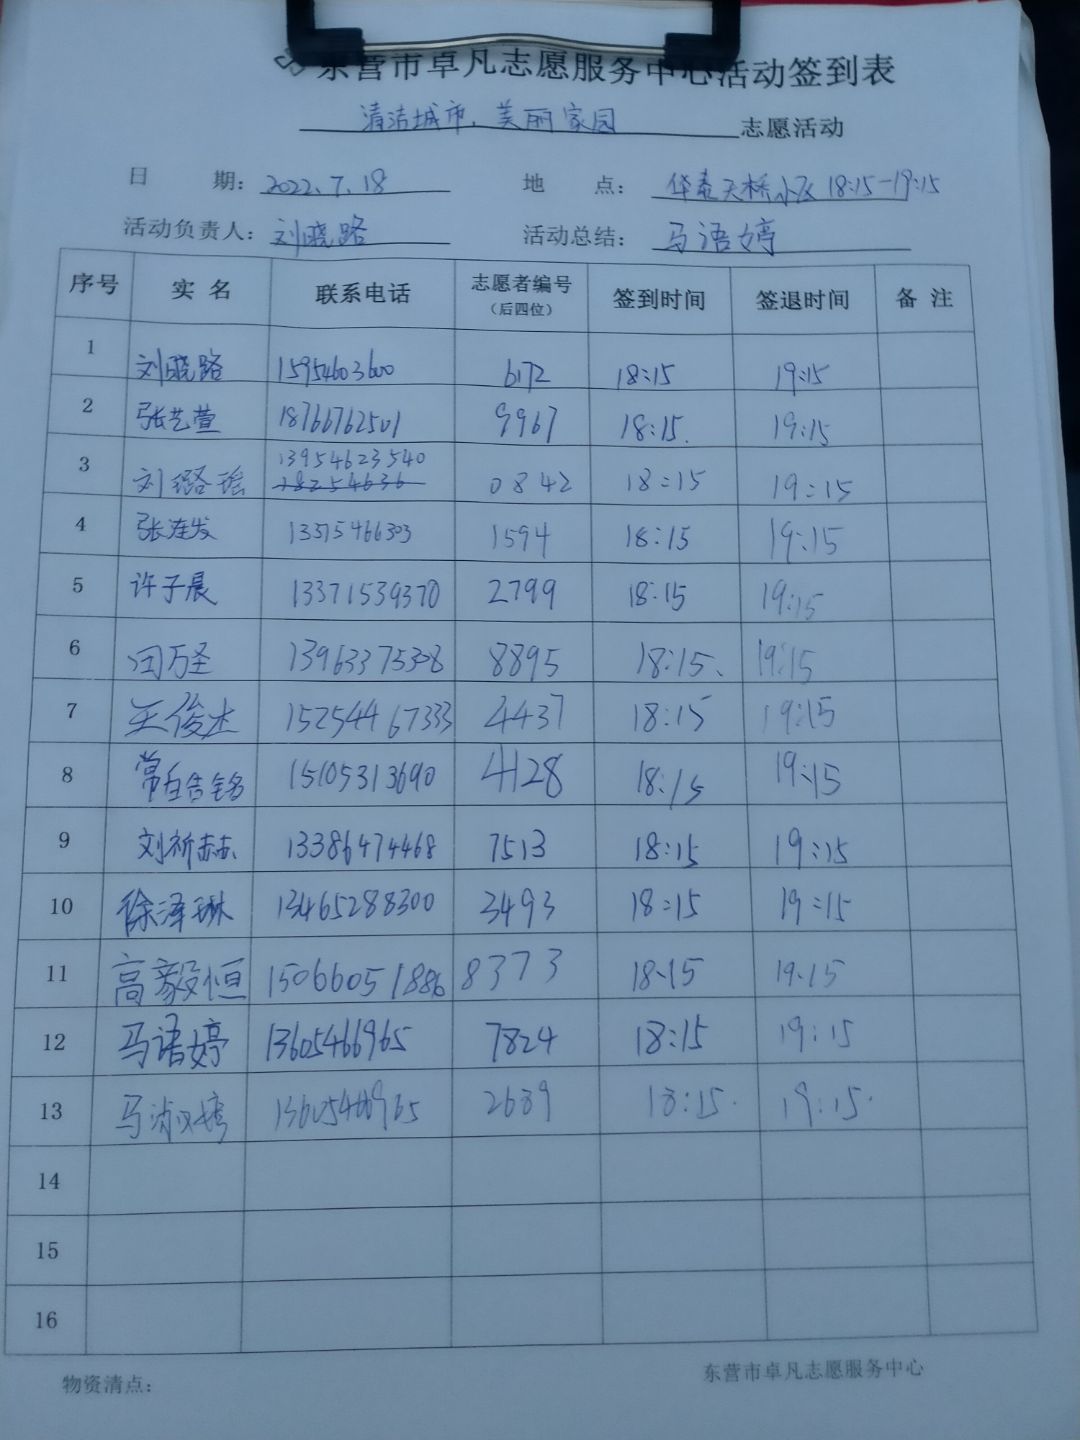 东营市卓凡志愿服务中心活动签到表
清洁城市、美丽家园 志愿活动
日 期: 2022.7.18 地 点: 华泰天桥小区 18:15-19:15
活动负责人: 刘晓路 活动总结: 马语婷
序号 实 名 联系电话 志愿者编号 (后四位) 签到时间 签退时间 备 注
1 刘晓路 15954603600 6172 18:15 19:15
2 张艺萱 18766762501 9967 18:15. 19:15
3 刘璐瑶 13954623540 0842 18:15 19:15
4 张连发 13515466303 1594 18:15 19:15
5 许子晨 13371539370 2799 18:15 19:15
6 闫万圣 13963375338 8895 18:15、 19:15
7 王俊杰 15254467333 4437 18:15 19:15
8 15105313690 4128 18:15 19:15
9 刘祈赫 13386474468 7513 18:15 19:15
10 徐泽琳 13465288300 3493 18:15 19:15
11 高毅恒 15066051886 8373 18:15 19:15
12 马语婷 13605466965 7824 18:15 19:15
13 马 13605466965 2689 18:15. 19:15.
14
15
16
物资清点: 东营市卓凡志愿服务中心